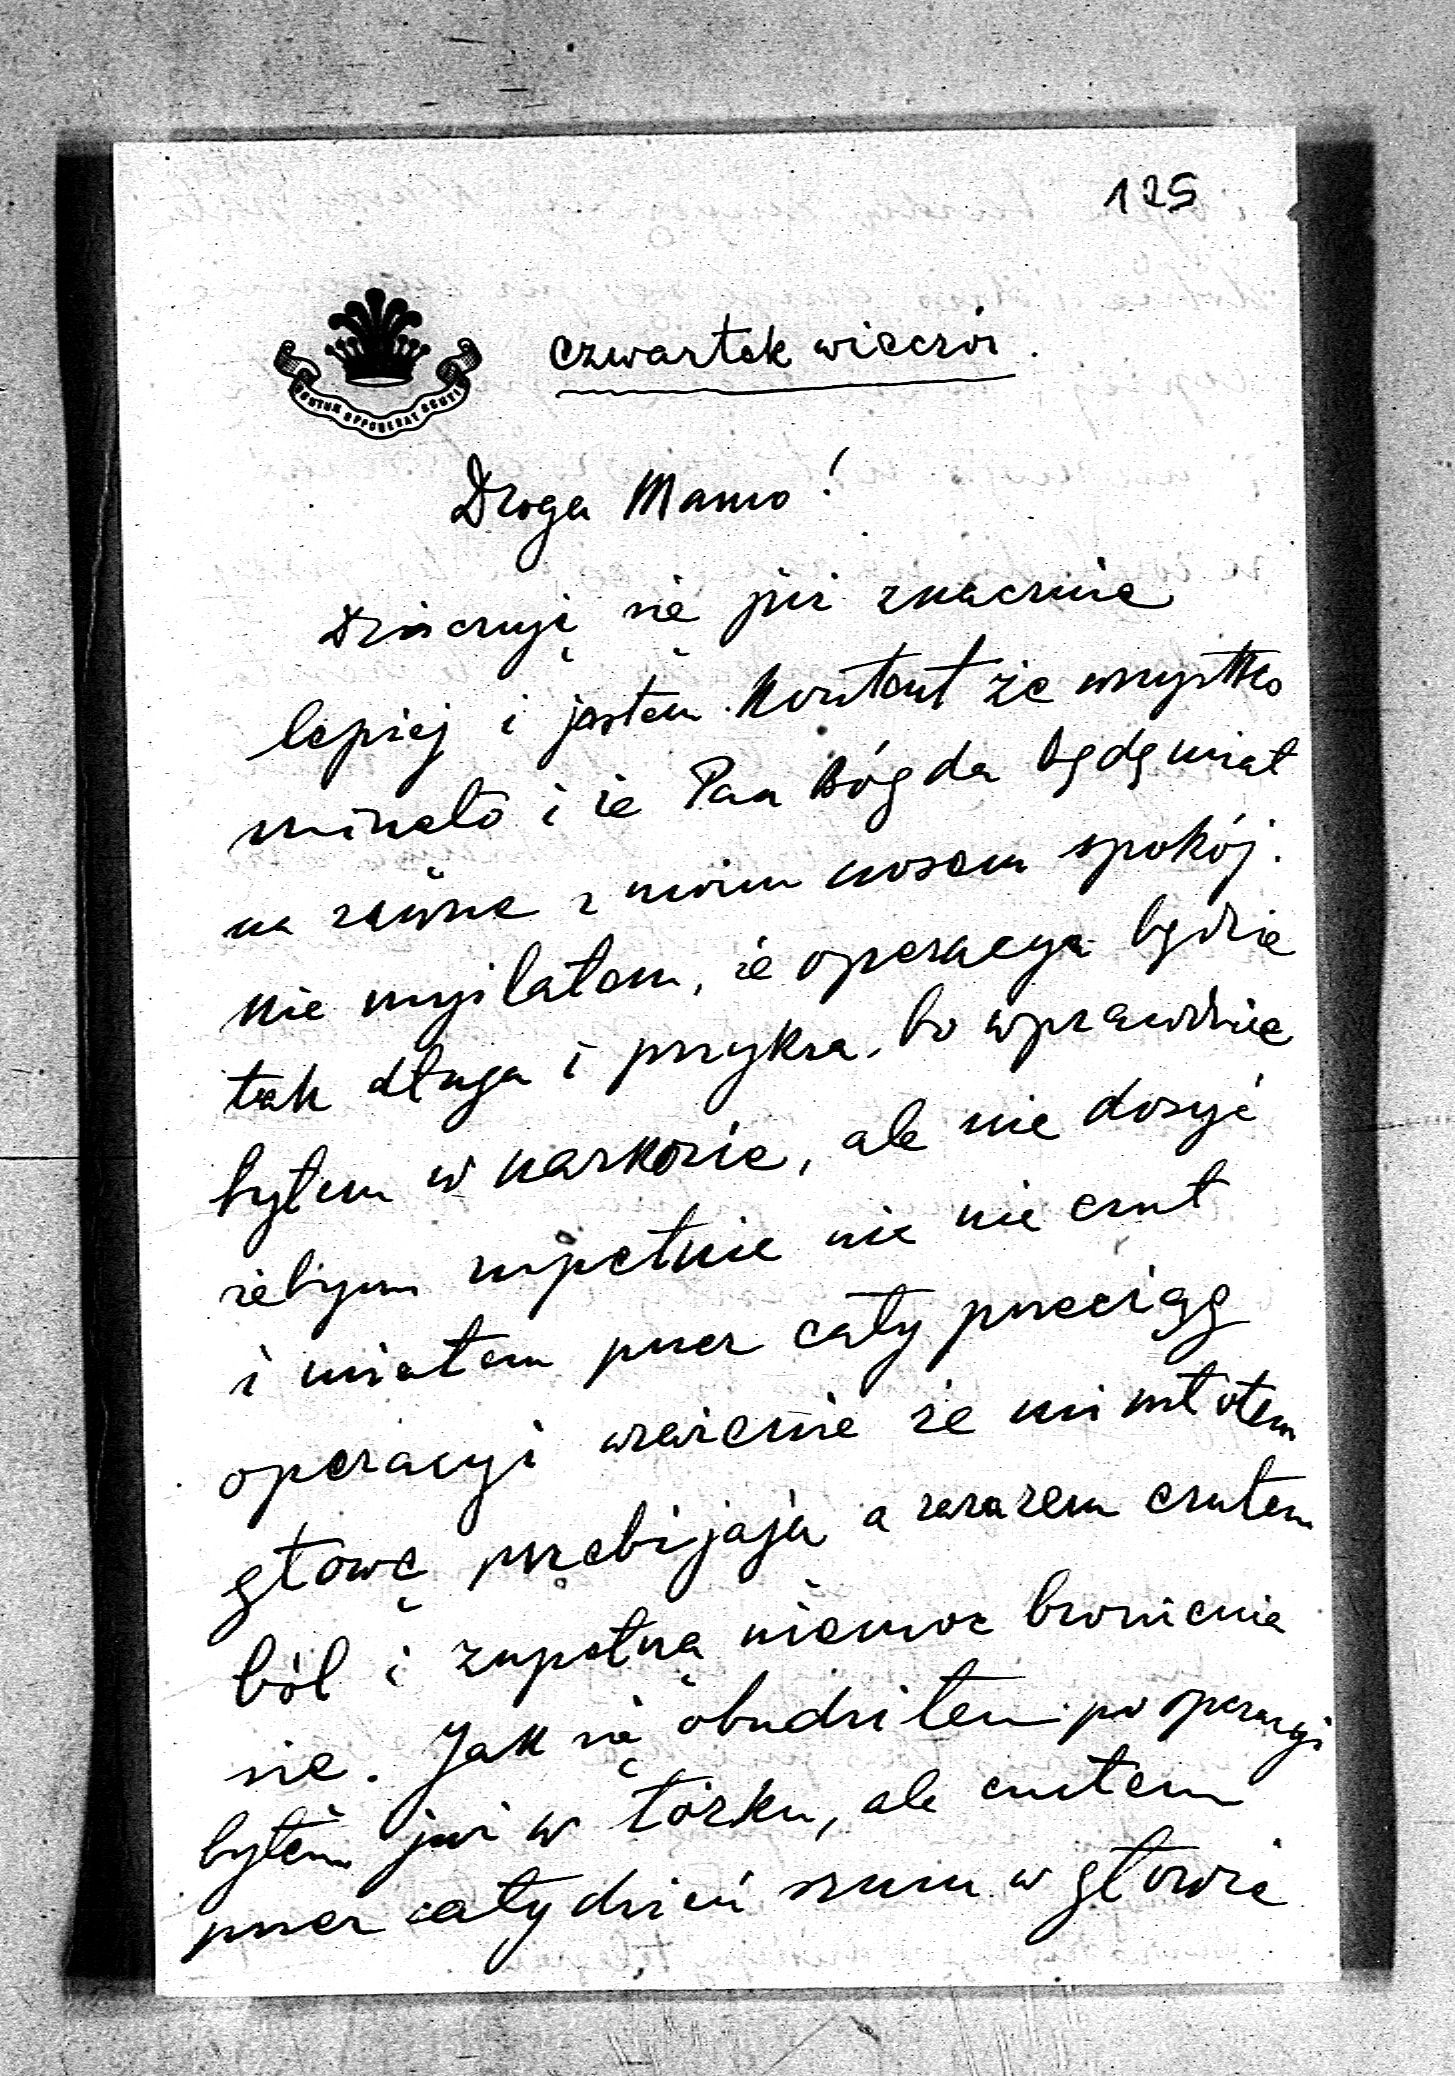 125
CONTUM OPPONERAT SCUTI
czwartek wieczór.
Droga Mamo!
Dziś czuję się już znacznie
lepiej i jestem kontent że wszystko
minęło i że Pan Bóg da będę miał
na równe z moim nosem spokój.
nie myślałem, że operacya będzie
tak długa i przykra, bo wprawdzie
byłem w narkozie, ale nie dosyć
żebym zupełnie nic nie czuł
i miałem przez cały przeciąg
operacyi wrażenie że mi młotem
głowę przebijają a zarazem czułem
ból i zupełną niemoc bronienia
się. Jak się obudziłem po operacyi
byłem już w łóżku, ale czułem
przez cały dzień szum w głowie